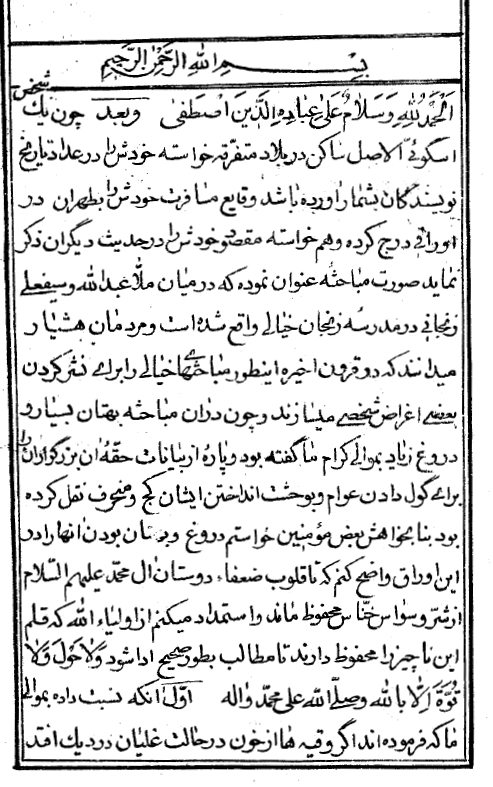 بِسْمِ اللهِ الرَّحْمٰنِ الرَّحِيمِ
اَلْحَمْدُ لِلّٰهِ وَسَلَامٌ عَلىٰ عِبَادِهِ الَّذِينَ اصْطَفىٰ وبعد چون یك شخص
اسکوئی الاصل ساکن در بلاد متفرقه خواسته خودش را در عداد تاریخ
نویسندگان بشمار آورده باشد وقایع مسافرت خودش را بطهران در
اوراقی درج کرده وهم خواسته مقصود خودش را در حدیث دیگران ذکر
نماید صورت مباحثه عنوان نموده که در میان ملا عبد الله وسیفعلی
زنجانی در مدرسه زنجان خیالی واقع شده است ومردمان هشیار
میدانند که دو قرون اخیره اینطور مباحثهای خیالی را برای نشر کردن
بعضی اغراض شخصی میسازند وچون در ان مباحثه بهتان بسیار و
دروغ زیاد بموالی کرام ما گفته بود وپاره از بیانات حقه ان بزرگواران را
برای گول دادن عوام وبوحشت انداختن ایشان کج ومنحرف نقل کرده
بود بنا بخواهش بعض مؤمنین خواستم دروغ وبهتان بودن انها را در
این اوراق واضح کنم که تا قلوب ضعفاء دوستان ال محمد علیهم السلام
از شر وسواس خناس محفوظ ماند واستمداد میکنم از اولیاء الله که قلم
این ناچیز را محفوظ دارند تا مطالب بطور صحیح ادا شود وَلَا حَوْلَ وَلَا
قُوَّةَ اِلَّا بالله وصلّى الله على محمد واله اوّل آنکه نسبت داده بموالی
ما که فرموده اند اگر وقیه ها از خون در حالت غلیان در دیك افتد